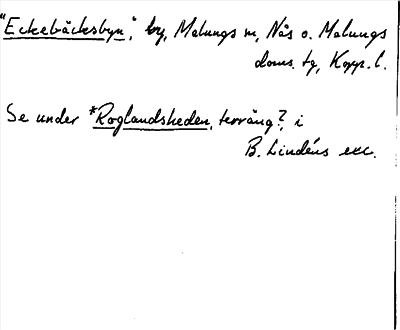 "Eckebäcksbyn", by, Malungs sn, Nås o. Malungs
doms. tg, Kopp. l.
Se under *Roglandsheden, terräng?, i
B. Lindéns exc.